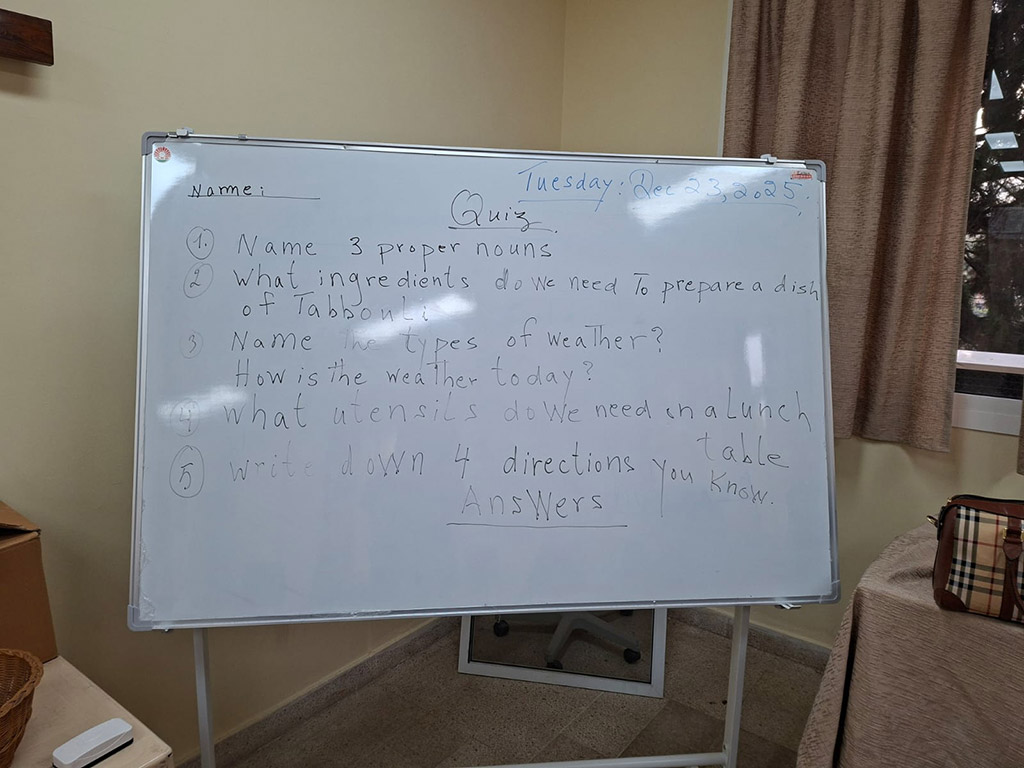 Name:
Tuesday: Dec 23, 2025.
Quiz.
1. Name 3 proper nouns
2 What ingredients do we need To prepare a dish
of Tabbouli
3 Name the types of weather?
How is the weather today?
4 What utensils do We need in a Lunch
table
5 Write down 4 directions you Know.
Answers